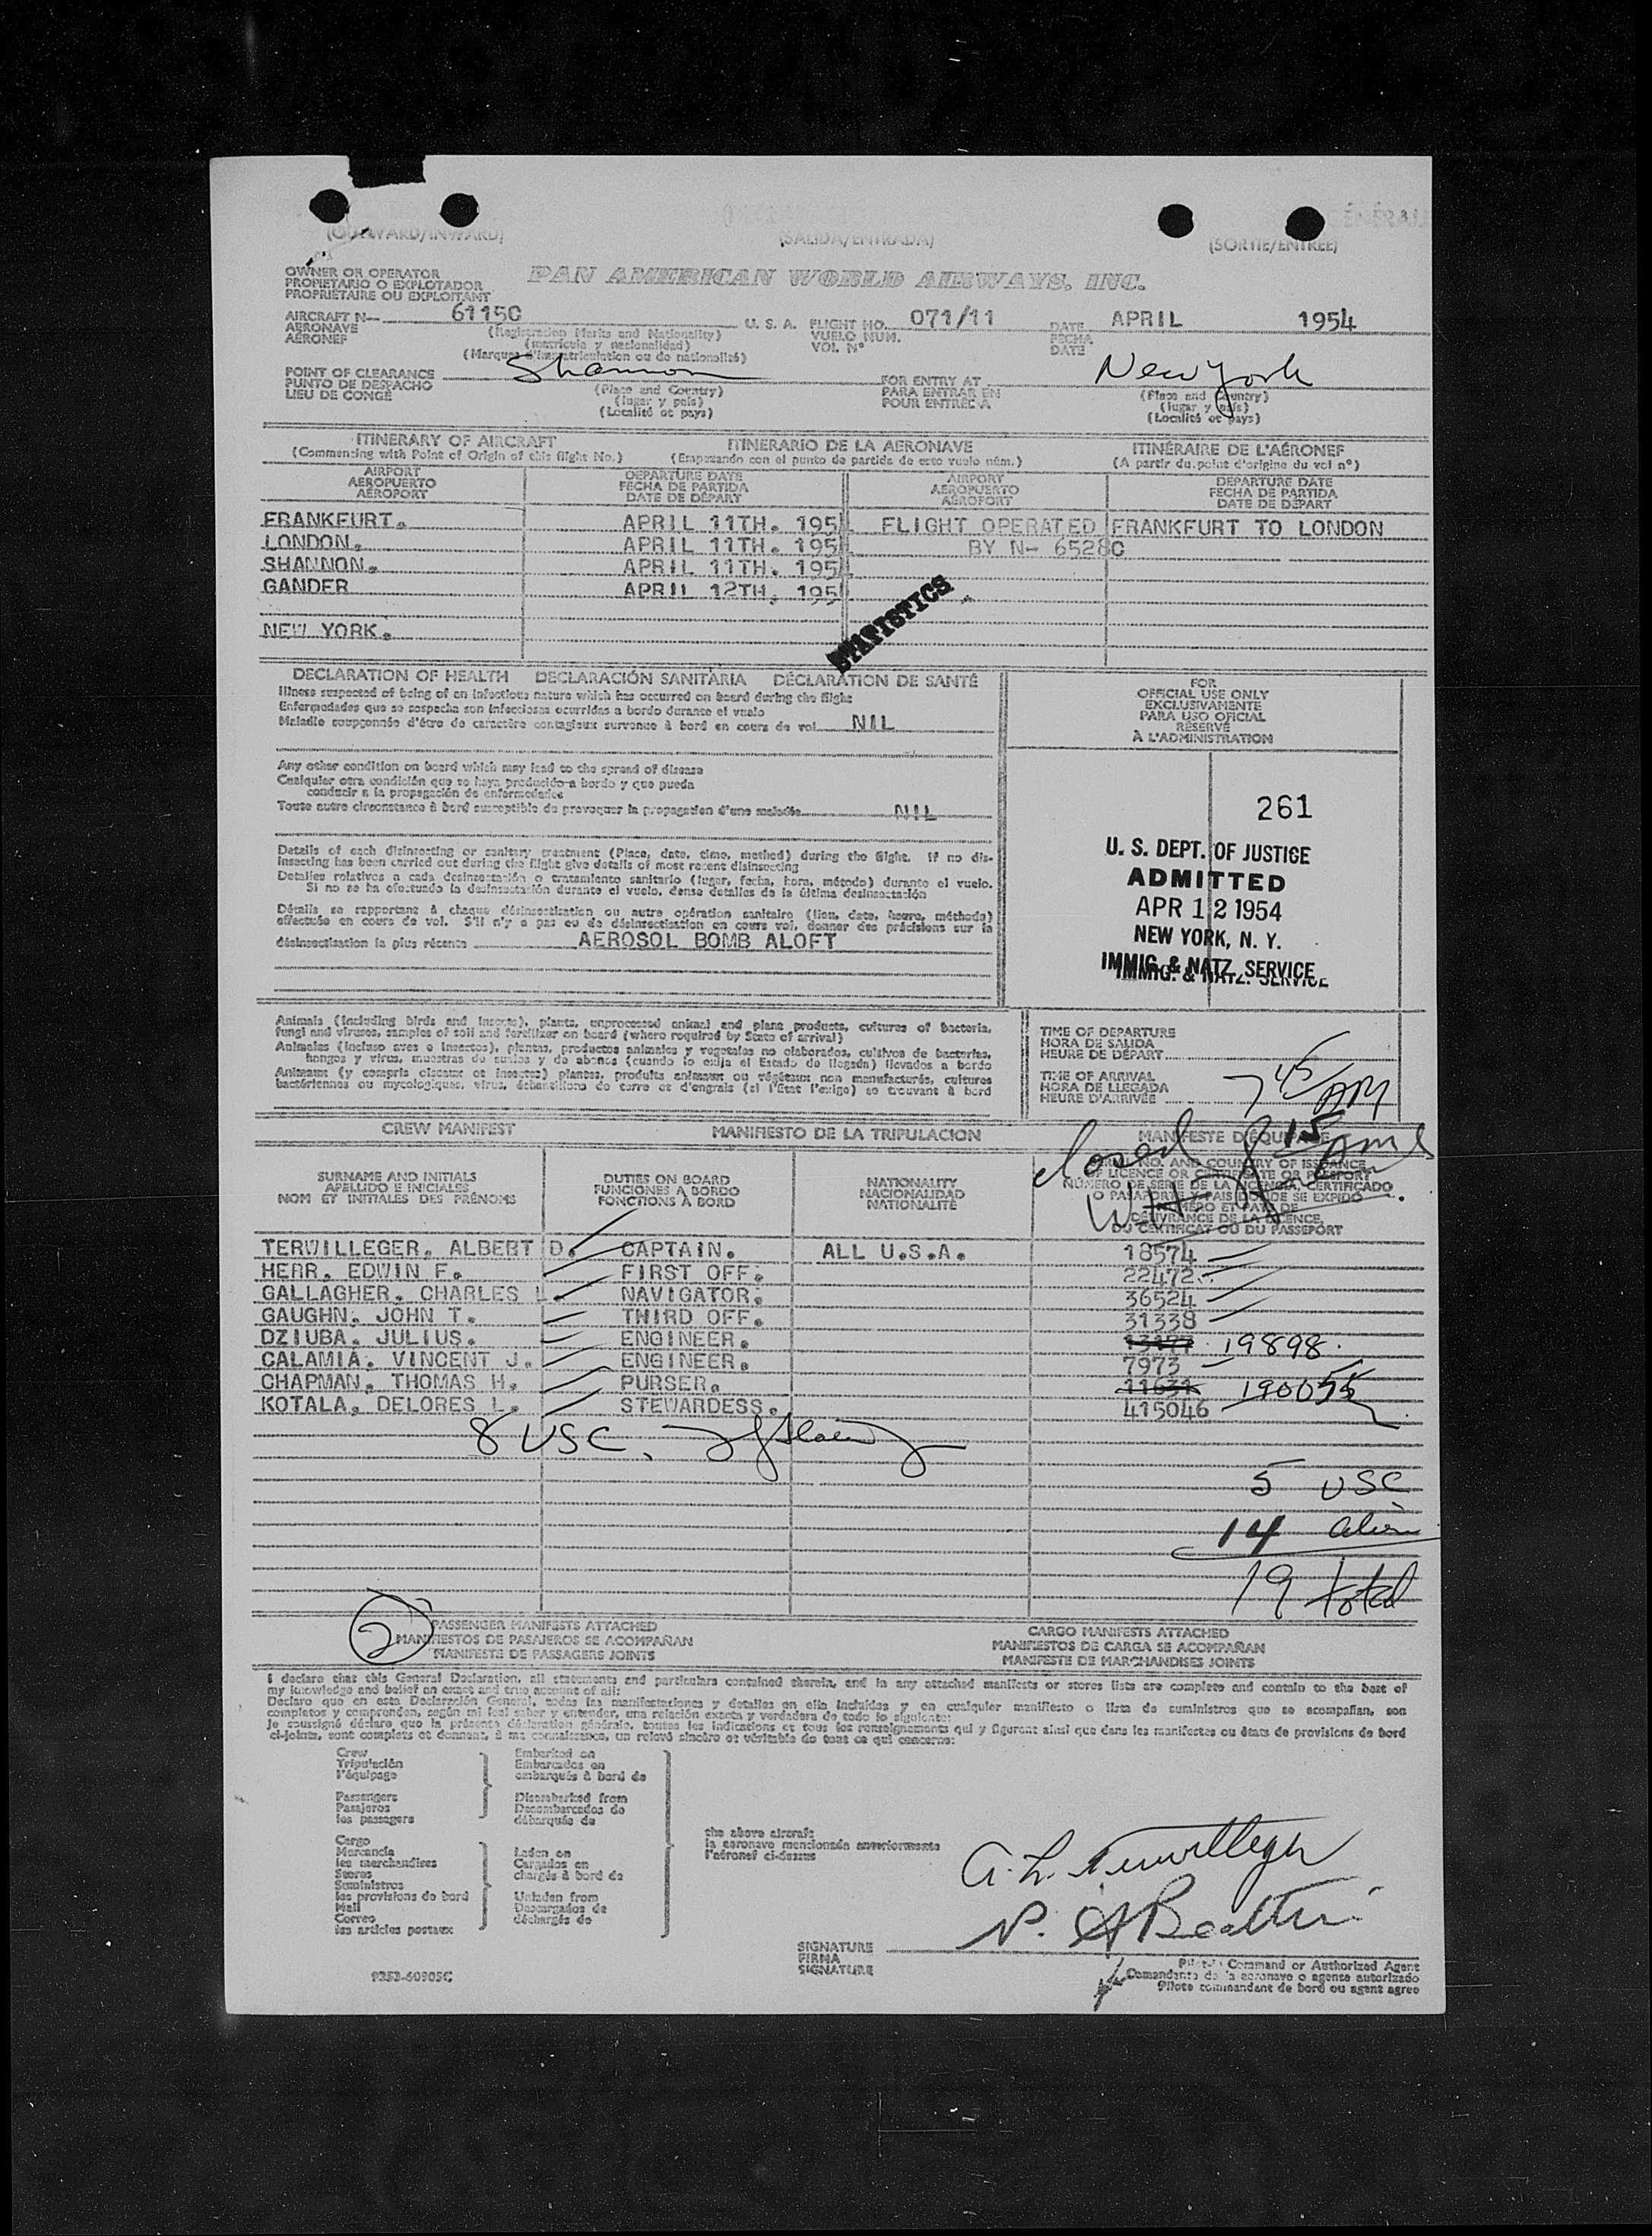 (OUTWARD/INWARD) (SALIDA/ENTRADA) (SORTIE/ENTREE)
OWNER OR OPERATOR
PROPIETARIO O EXPLOTADOR
PROPRIÉTAIRE OU EXPLOITANT
PAN AMERICAN WORLD AIRWAYS, INC.
AIRCRAFT N— 6115C U. S. A. FLIGHT NO. 071/11 DATE APRIL 1954
AERONAVE (Registration Marks and Nationality) VUELO NUM. FECHA
AÉRONEF (matrícula y nacionalidad) VOL Nº DATE
(Marques d'Immatriculation ou de nationalité)
POINT OF CLEARANCE Shannon FOR ENTRY AT New York
PUNTO DE DESPACHO (Place and Country) PARA ENTRAR EN (Place and Country)
LIEU DE CONGÉ (lugar y país) POUR ENTRÉE A (lugar y país)
(Localité et pays) (Localité et pays)
ITINERARY OF AIRCRAFT ITINERARIO DE LA AERONAVE ITINÉRAIRE DE L'AÉRONEF
(Commencing with Point of Origin of this flight No.) (Empezando con el punto de partida de este vuelo núm.) (A partir du point d'origine du vol nº)
AIRPORT DEPARTURE DATE AIRPORT DEPARTURE DATE
AEROPUERTO FECHA DE PARTIDA AEROPUERTO FECHA DE PARTIDA
AÉROPORT DATE DE DÉPART AÉROPORT DATE DE DÉPART
FRANKFURT. APRIL 11TH. 1954 FLIGHT OPERATED FRANKFURT TO LONDON
LONDON. APRIL 11TH. 1954 BY N- 6528C
SHANNON. APRIL 11TH. 1954
GANDER APRIL 12TH, 195
STATISTICS
NEW YORK.
DECLARATION OF HEALTH DECLARACIÓN SANITARIA DÉCLARATION DE SANTÉ
Illness suspected of being of an infectious nature which has occurred on board during the flight
Enfermedades que se sospecha son infecciosas ocurridas a bordo durante el vuelo
Maladie soupçonnée d'être de caractère contagieux survenue à bord en cours de vol NIL
Any other condition on board which may lead to the spread of disease
Cualquier otra condición que se haya producido a bordo y que pueda
conducir a la propagación de enfermedades
Toute autre circonstance à bord susceptible de provoquer la propagation d'une maladie NIL
Details of each disinsecting or sanitary treatment (Place, date, time, method) during the flight. If no dis-
insecting has been carried out during the flight give details of most recent disinsecting
Detalles relativos a cada desinsectación o tratamiento sanitario (lugar, fecha, hora, método) durante el vuelo.
Si no se ha efectuado la desinsectación durante el vuelo, dense detalles de la última desinsectación
Détails se rapportant à chaque désinsectisation ou autre opération sanitaire (lieu, date, heure, méthode)
effectuée en cours de vol. S'il n'y a pas eu de désinsectisation en cours vol, donner des précisions sur la
désinsectisation la plus récente AEROSOL BOMB ALOFT
FOR
OFFICIAL USE ONLY
EXCLUSIVAMENTE
PARA USO OFICIAL
RÉSERVÉ
À L'ADMINISTRATION
261
U. S. DEPT. OF JUSTICE
ADMITTED
APR 12 1954
NEW YORK, N. Y.
IMMIG. & NATZ. SERVICE
IMMIG. & NATZ. SERVICE
Animals (including birds and insects), plants, unprocessed animal and plant products, cultures of bacteria,
fungi and viruses, samples of soil and fertilizer on board (where required by State of arrival)
Animales (incluso aves e insectos), plantas, productos animales y vegetales no elaborados, cultivos de bacterias,
hongos y virus, muestras de suelos y de abonos (cuando lo exija el Estado de llegada) llevados a bordo
Animaux (y compris oiseaux et insectes) plantes, produits animaux ou végétaux non manufacturés, cultures
bactériennes ou mycologiques, virus, échantillons de terre et d'engrais (si l'État l'exige) se trouvant à bord
TIME OF DEPARTURE
HORA DE SALIDA
HEURE DE DÉPART
TIME OF ARRIVAL
HORA DE LLEGADA
HEURE D'ARRIVÉE 7 45 AM
CREW MANIFEST MANIFIESTO DE LA TRIPULACION MANIFESTE D'ÉQUIPAGE
closed 8 15 AM
SURNAME AND INITIALS DUTIES ON BOARD NATIONALITY NO. AND COUNTRY OF ISSUANCE
APELLIDO E INICIALES FUNCIONES A BORDO NACIONALIDAD OF LICENCE OR CERTIFICATE OR PASSPORT
NOM ET INITIALES DES PRÉNOMS FONCTIONS À BORD NATIONALITÉ NÚMERO DE SERIE DE LA LICENCIA, CERTIFICADO
O PASAPORTE Y PAIS DONDE SE EXPIDO
NUMÉRO ET PAYS DE
DÉLIVRANCE DE LA LICENCE,
DU CERTIFICAT OU DU PASSEPORT
TERWILLEGER, ALBERT D. CAPTAIN. ALL U.S.A. 18574
HERR, EDWIN F. FIRST OFF. 22472
GALLAGHER, CHARLES L. NAVIGATOR. 36524
GAUGHN, JOHN T. THIRD OFF. 31338
DZIUBA, JULIUS. ENGINEER. 13177 19898
CALAMIA, VINCENT J. ENGINEER. 7973
CHAPMAN, THOMAS H. PURSER. 11631 190055
KOTALA, DELORES L. STEWARDESS. 415046
8 USC.
5 USC
14 alien
19 total
2
PASSENGER MANIFESTS ATTACHED CARGO MANIFESTS ATTACHED
MANIFIESTOS DE PASAJEROS SE ACOMPAÑAN MANIFIESTOS DE CARGA SE ACOMPAÑAN
MANIFESTE DE PASSAGERS JOINTS MANIFESTE DE MARCHANDISES JOINTS
I declare that this General Declaration, all statements and particulars contained therein, and in any attached manifests or stores lists are complete and contain to the best of
my knowledge and belief an exact and true account of all:
Declaro que en esta Declaración General, todas las manifestaciones y detalles en ella incluidas y en cualquier manifiesto o lista de suministros que se acompañan, son
completos y comprenden, según mi leal saber y entender, una relación exacta y verdadera de todo lo siguiente:
Je soussigné déclare que la présente déclaration générale, toutes les indications et tous les renseignements qui y figurent ainsi que dans les manifestes ou états de provisions de bord
ci-joints, sont complets et donnent, à ma connaissance, un relevé sincère et véritable de tout ce qui concerne:
Crew Embarked on
Tripulación Embarcados en
l'équipage embarqués à bord de
Passengers Disembarked from
Pasajeros Desembarcados de
les passagers débarqués de
the above aircraft
la aeronave mencionada anteriormente
l'aéronef ci-dessus
Cargo
Mercancía Laden on
les merchandises Cargados en
Stores chargés à bord de
Suministros
les provisions de bord Unladen from
Mail Descargados de
Correo déchargés de
les articles postaux
SIGNATURE
FIRMA
SIGNATURE
Command or Authorized Agent
Comandante de la aeronave o agente autorizado
Pilote commandant de bord ou agent agree
9353-60905C